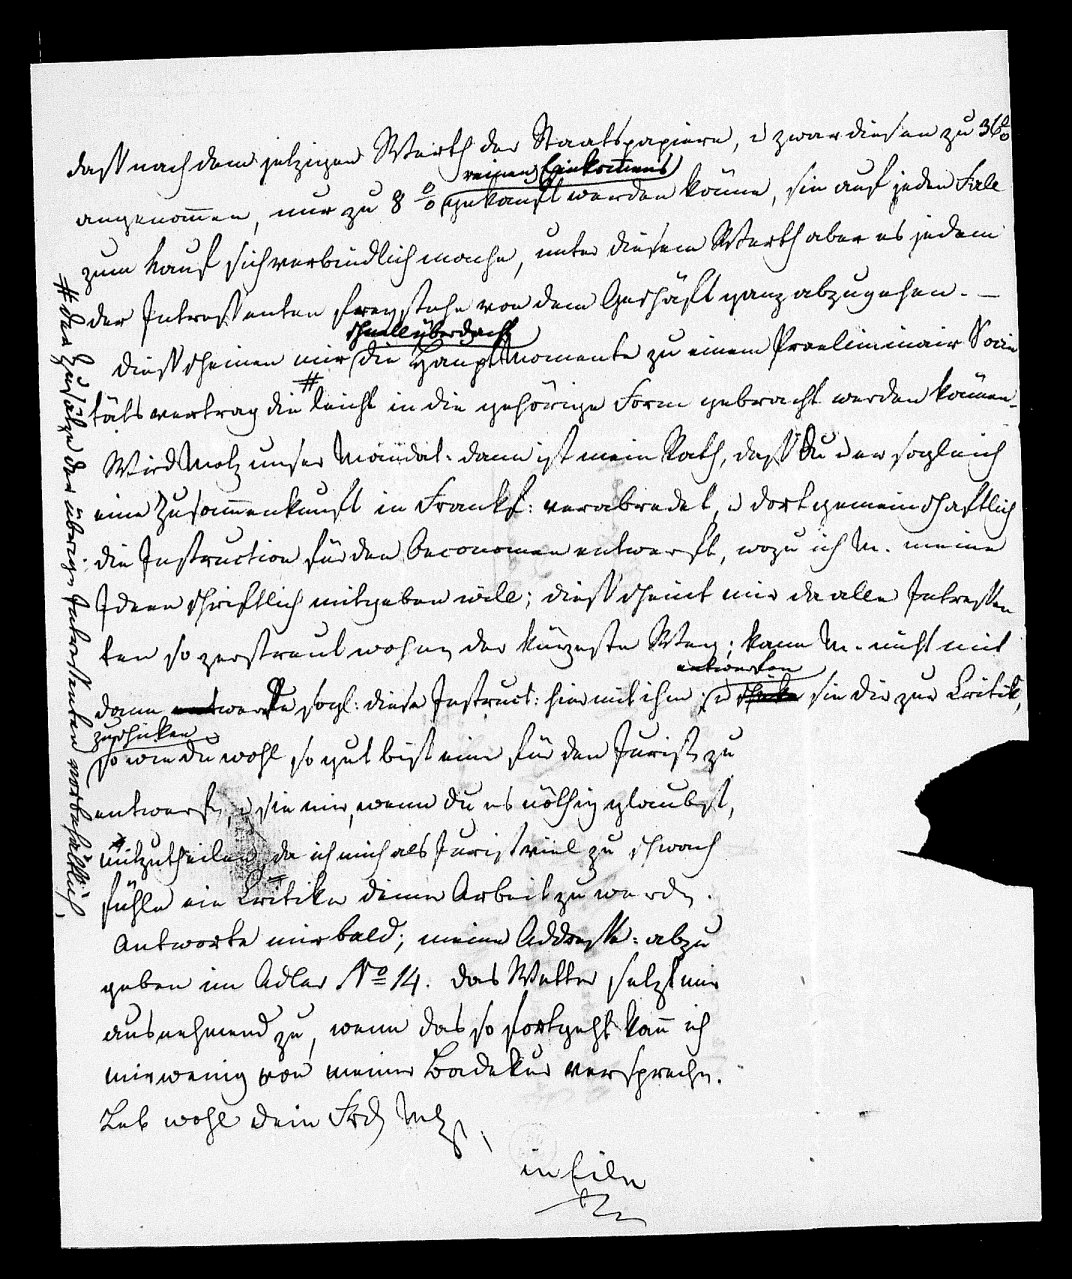 daß nach dem jetzigen Werth der Staatspapiere, u zwar diesen zu 36 %
reinen Einkomens
angenom̄en, nur zu 8 % gekauft werden könne, sie auf jeden Fall
zum Kauf sich verbindlich mache, unter diesem Werth aber es jedem
der Intreßenten freystehe von dem Geschäft ganz abzugehen. –
schnell überdacht
Dieß scheinen mir die Hauptmomente zu einem Praeliminair Socie
tätsvertrag die # leicht in die gehörige Form gebracht werden können.
Wird Motz unser Mandat. dann ist mein Rath, daß Du u er sogleich
eine Zusam̄enkunft in Frankf: verabredet, u dort gemeinschaftlich
die Instruction für den Oeconomen entwerft, wozu ich M. meine
Ideen schriftlich mitgeben will; dieß scheint mir da alle Intreßen
ten so zerstreut wohnen der kürzeste Weg; kann M. nicht mit
entwerfen
dann entwerfe sogl: diese Instruct: hier mit ihm, u schicke sie dir zur Critik,
zuschicken
so wie du wohl so gut bist eine für den Jurist zu
entwerfen, u sie mir, wenn du es nöthig glaubst,
mitzutheilen, da ich mich als Jurist viel zu schwach
fühle ein Critiker deiner Arbeit zu werden.
Antworte mir bald; meine Addreße: abzu
geben im Adler No 14. das Wetter setzt mir
ausnehmend zu, wenn das so fortgeht kan̄ ich
mir wenig von meiner Badekur versprechen.
Leb wohl dein Frd
in Eile
# der Zusätze der übrigen Intreßenten vorbehältlich.